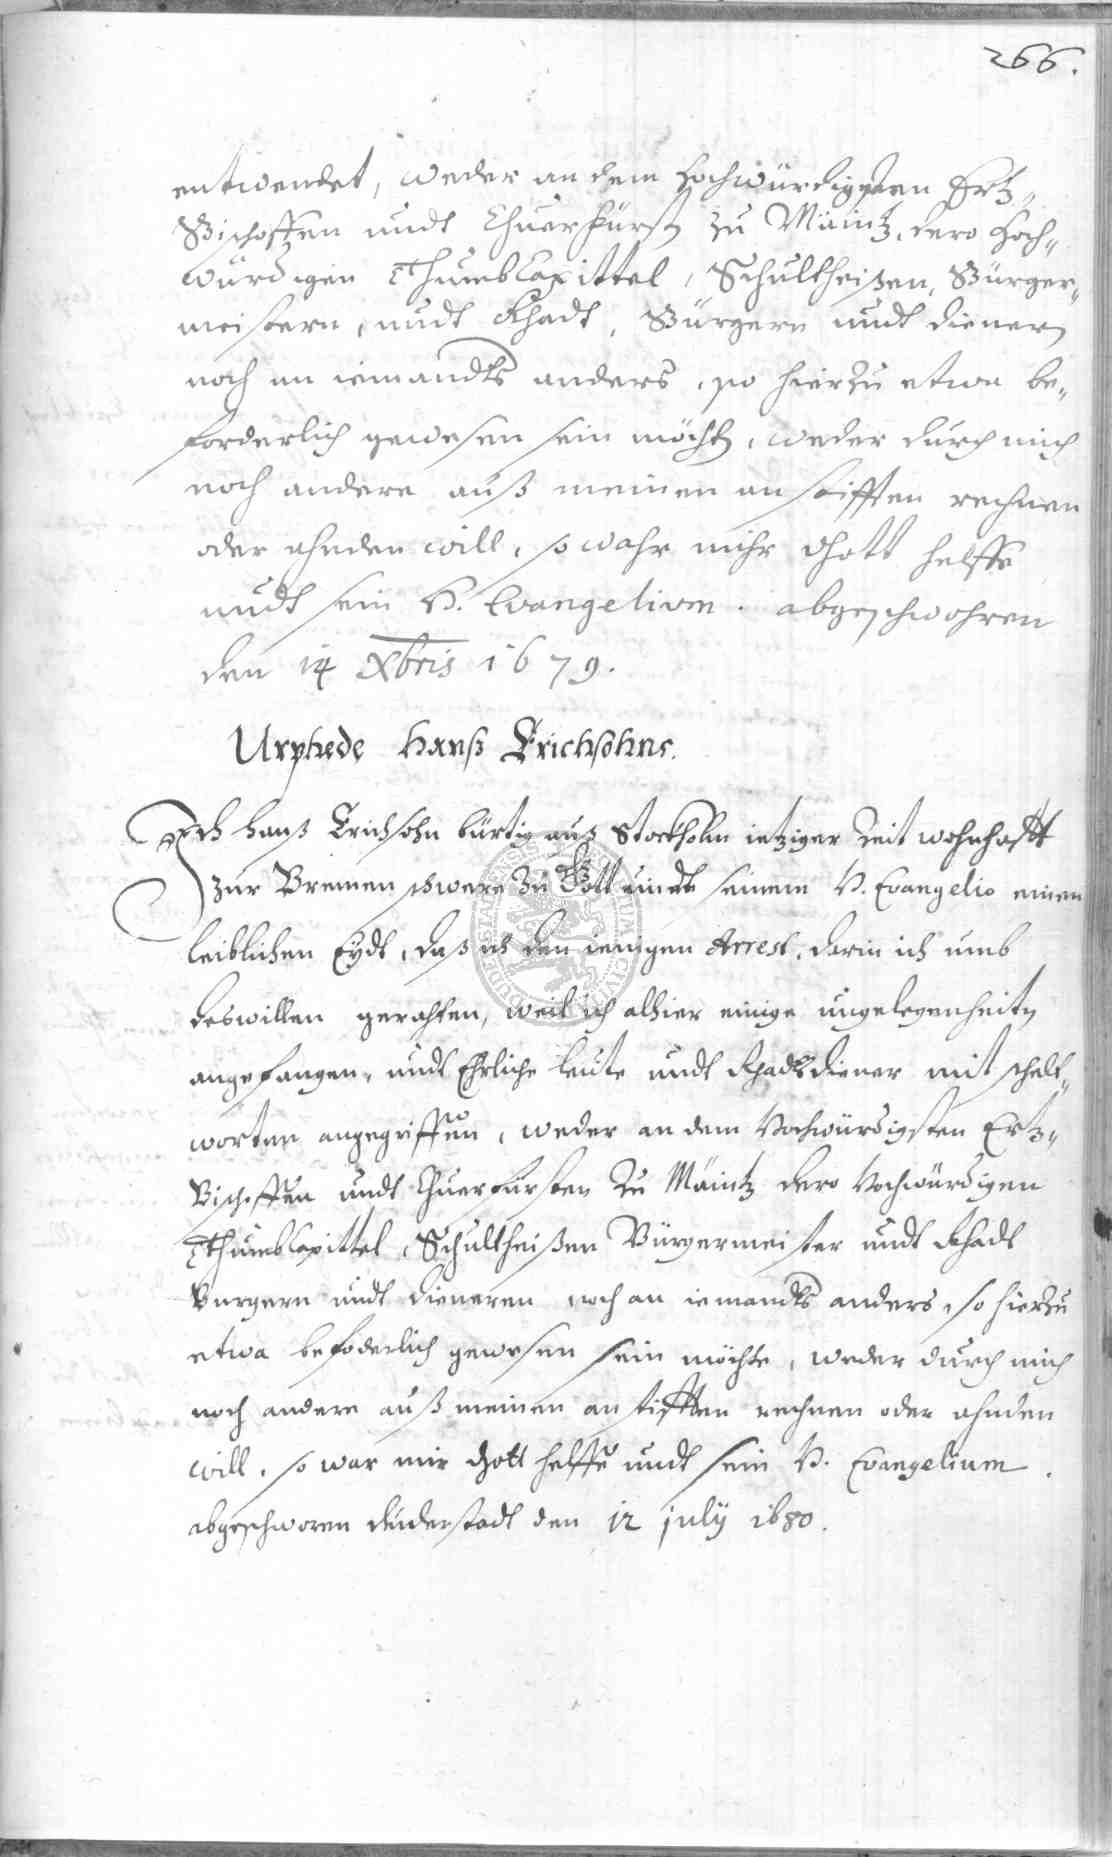 266.
entwendet, weder an dem hochwürdigsten Ertz-
Bischoffen undt Churfürst zu Mäintz, dero Hoch-
würdigen Thumb Capittel, Schultheißen, Bürger-
meistern, undt Rhadt, Bürgern undt dienern
noch an iemandts anders, so hierzu etwa be-
forderlich gewesen sein möcht, weder durch mich
noch andere auß meinen anstifften rechnen
oder ahnden will, so wahr mihr Ghott helffe
undt sein H. Evangelium. abgeschwohren
den 14 Xbris 1679.
Urphede Hanß Erichsohns.
Ich Hanß Erichsohn bürtig auß Stockholm ietziger Zeit wohnhafft
zur Bremen schwere zu Gott undt seinem H. Evangelio einen
leiblichen Eydt, daß ich den ienigen Arrest, darin ich umb
deswillen gerahten, weil ich alhier einige ungelegenheiten
angefangen, undt Ehrliche leute undt Rhadtsdiener mit schelt-
worten angegriffen, weder an dem Hochwürdigsten Ertz-
Bischoffen undt Churfürsten zu Mäintz dero Hochwürdigen
Thumb Capittel, Schultheißen Bürgermeister undt Rhadt
Burgern undt dieneren noch an iemandts anders, so hierzu
etwa befoderlich gewesen sein möchte, weder durch mich
noch andere auß meinen anstifften rechnen oder ahnden
will, so war mir Ghott helffe undt sein H. Evangelium.
abgeschworen duderstadt den 12 july 1680.